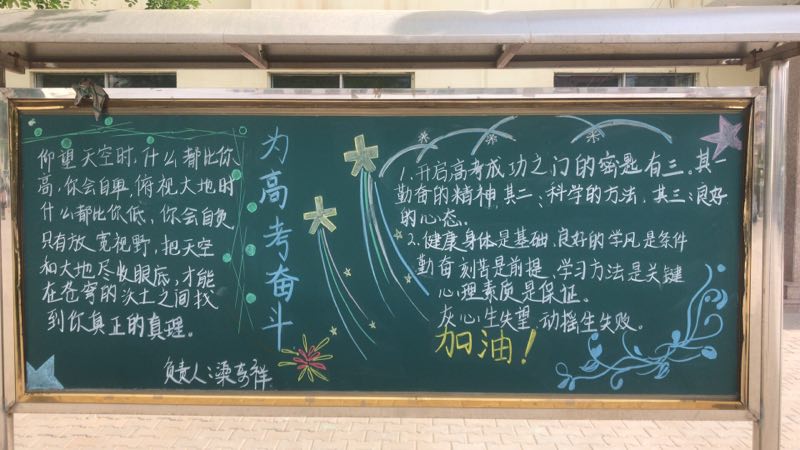 仰望天空时,什么都比你
高,你会自卑,俯视大地时
什么都比你低,你会自负
只有放宽视野,把天空
和大地尽收眼底,才能
在苍穹的沃土之间找
到你真正的真理。
负责人:梁
为高考奋斗
1.开启高考成功之门的密匙有三.其一
勤奋的精神,其二、科学的方法.其三:良好
的心态.
2.健康身体是基础,良好的学风是条件
勤奋刻苦是前提,学习方法是关键
心理素质是保证。
灰心生失望,动摇生失败.
加油!